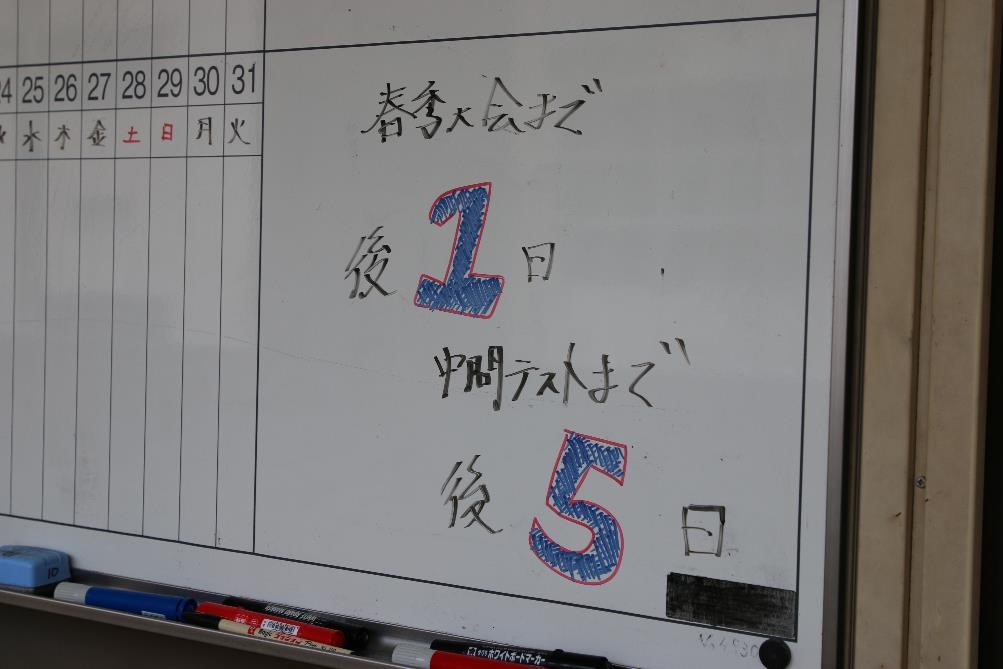 24 25 26 27 28 29 30 31
水 木 金 土 日 月 火
春季大会まで
後 1 日
中間テストまで
後 5 日
ホワイトボートマーカー